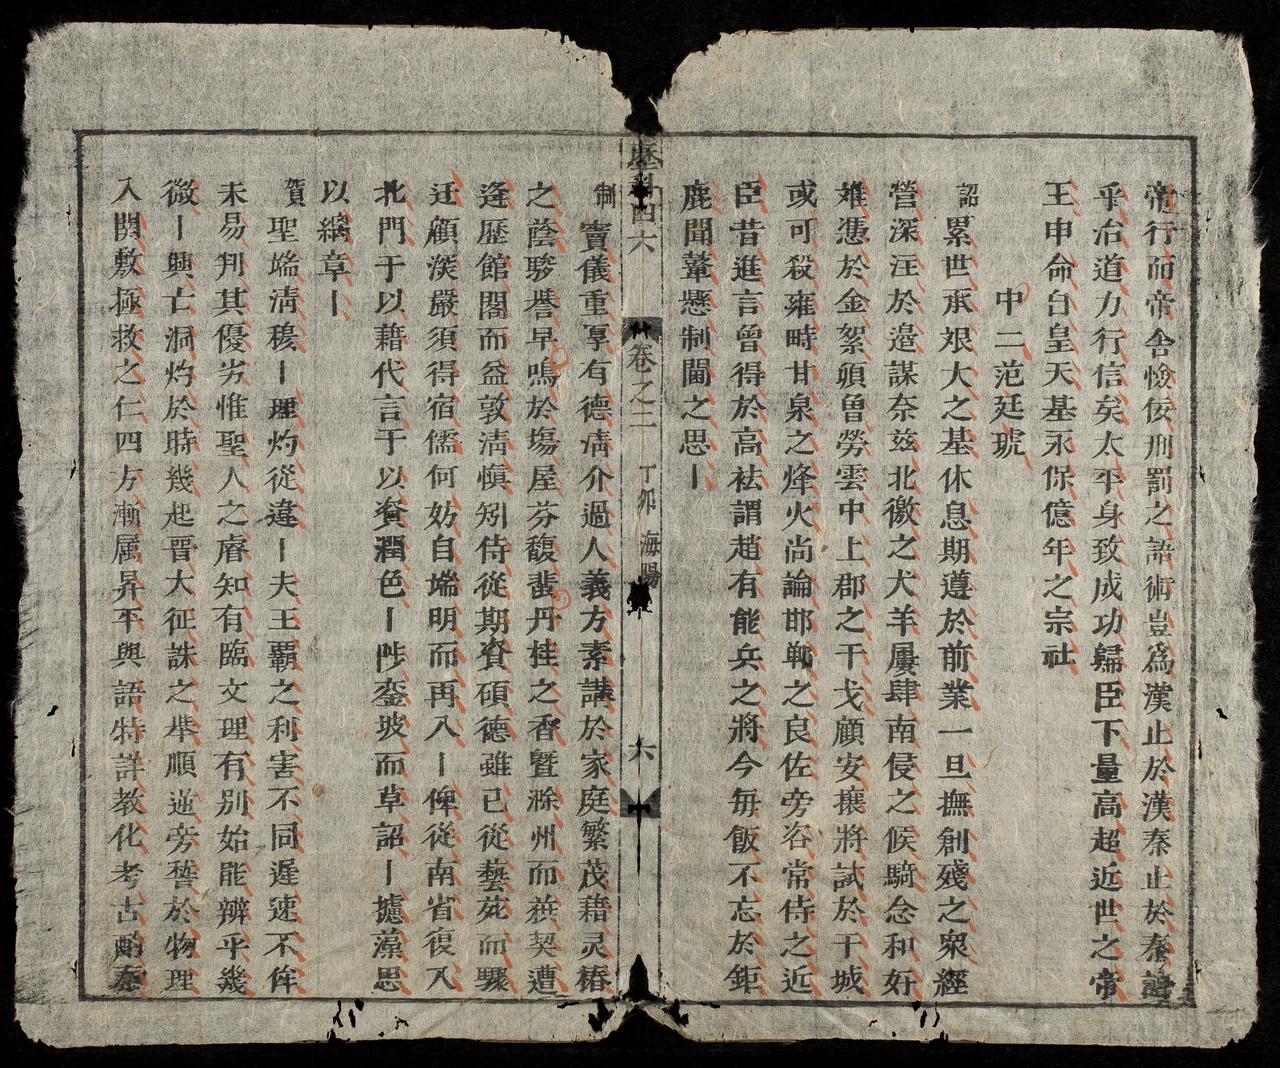 帝行而帝舍憸佞刑罰之語術豈爲漢止於漢秦止於秦
乎治道力行信矣太平身致成功歸臣下量高超近世之帝
王申命自皇天基永保億年之宗社
中二范廷琥
詔累世承艰大之基休息期遵於前業一旦撫創殘之衆經
營深汪於邉謀奈兹北徼之犬羊屢肆南侵之候騎念和好
难憑於金絮頭曾勞雲中上郡之干戈顧安攘將試於干城
或可殺雍時甘泉之烽火尚論邯郸之良佐旁咨常侍之近
臣昔進言曾得於高袪謂趙有能兵之將今毎飯不忘於鉅
鹿聞鼙懸制閫之思〡
臺科四六
卷之二 丁卯 海陽
六
制竇儀重厚有德清介過人義方素講於家庭繁茂藉灵椿
之蔭駿譽早鳴於塲屋芬馥蜚丹桂之香曁滁州而莅契遭
逢歷館閣而益敦清愼矧侍從期資碩德雖已从藝苑而驟
迁顧深嚴須得宿儒何妨自端明而再入〡俾從南省復入
北門于以藉代言于以資潤色〡陟銮坡而草詔〡攄藻思
以綸章〡
賀聖端清穆〡理灼從違〡夫王覇之利害不同遅速不侔
未易判其優劣惟聖人之睿知有臨文理有別始能辨乎幾
微〡興亡洞灼於時幾起晋大征誅之擧順逆旁誓於物理
入関敷極救之仁四方漸属昇平與語特詳教化考古酌